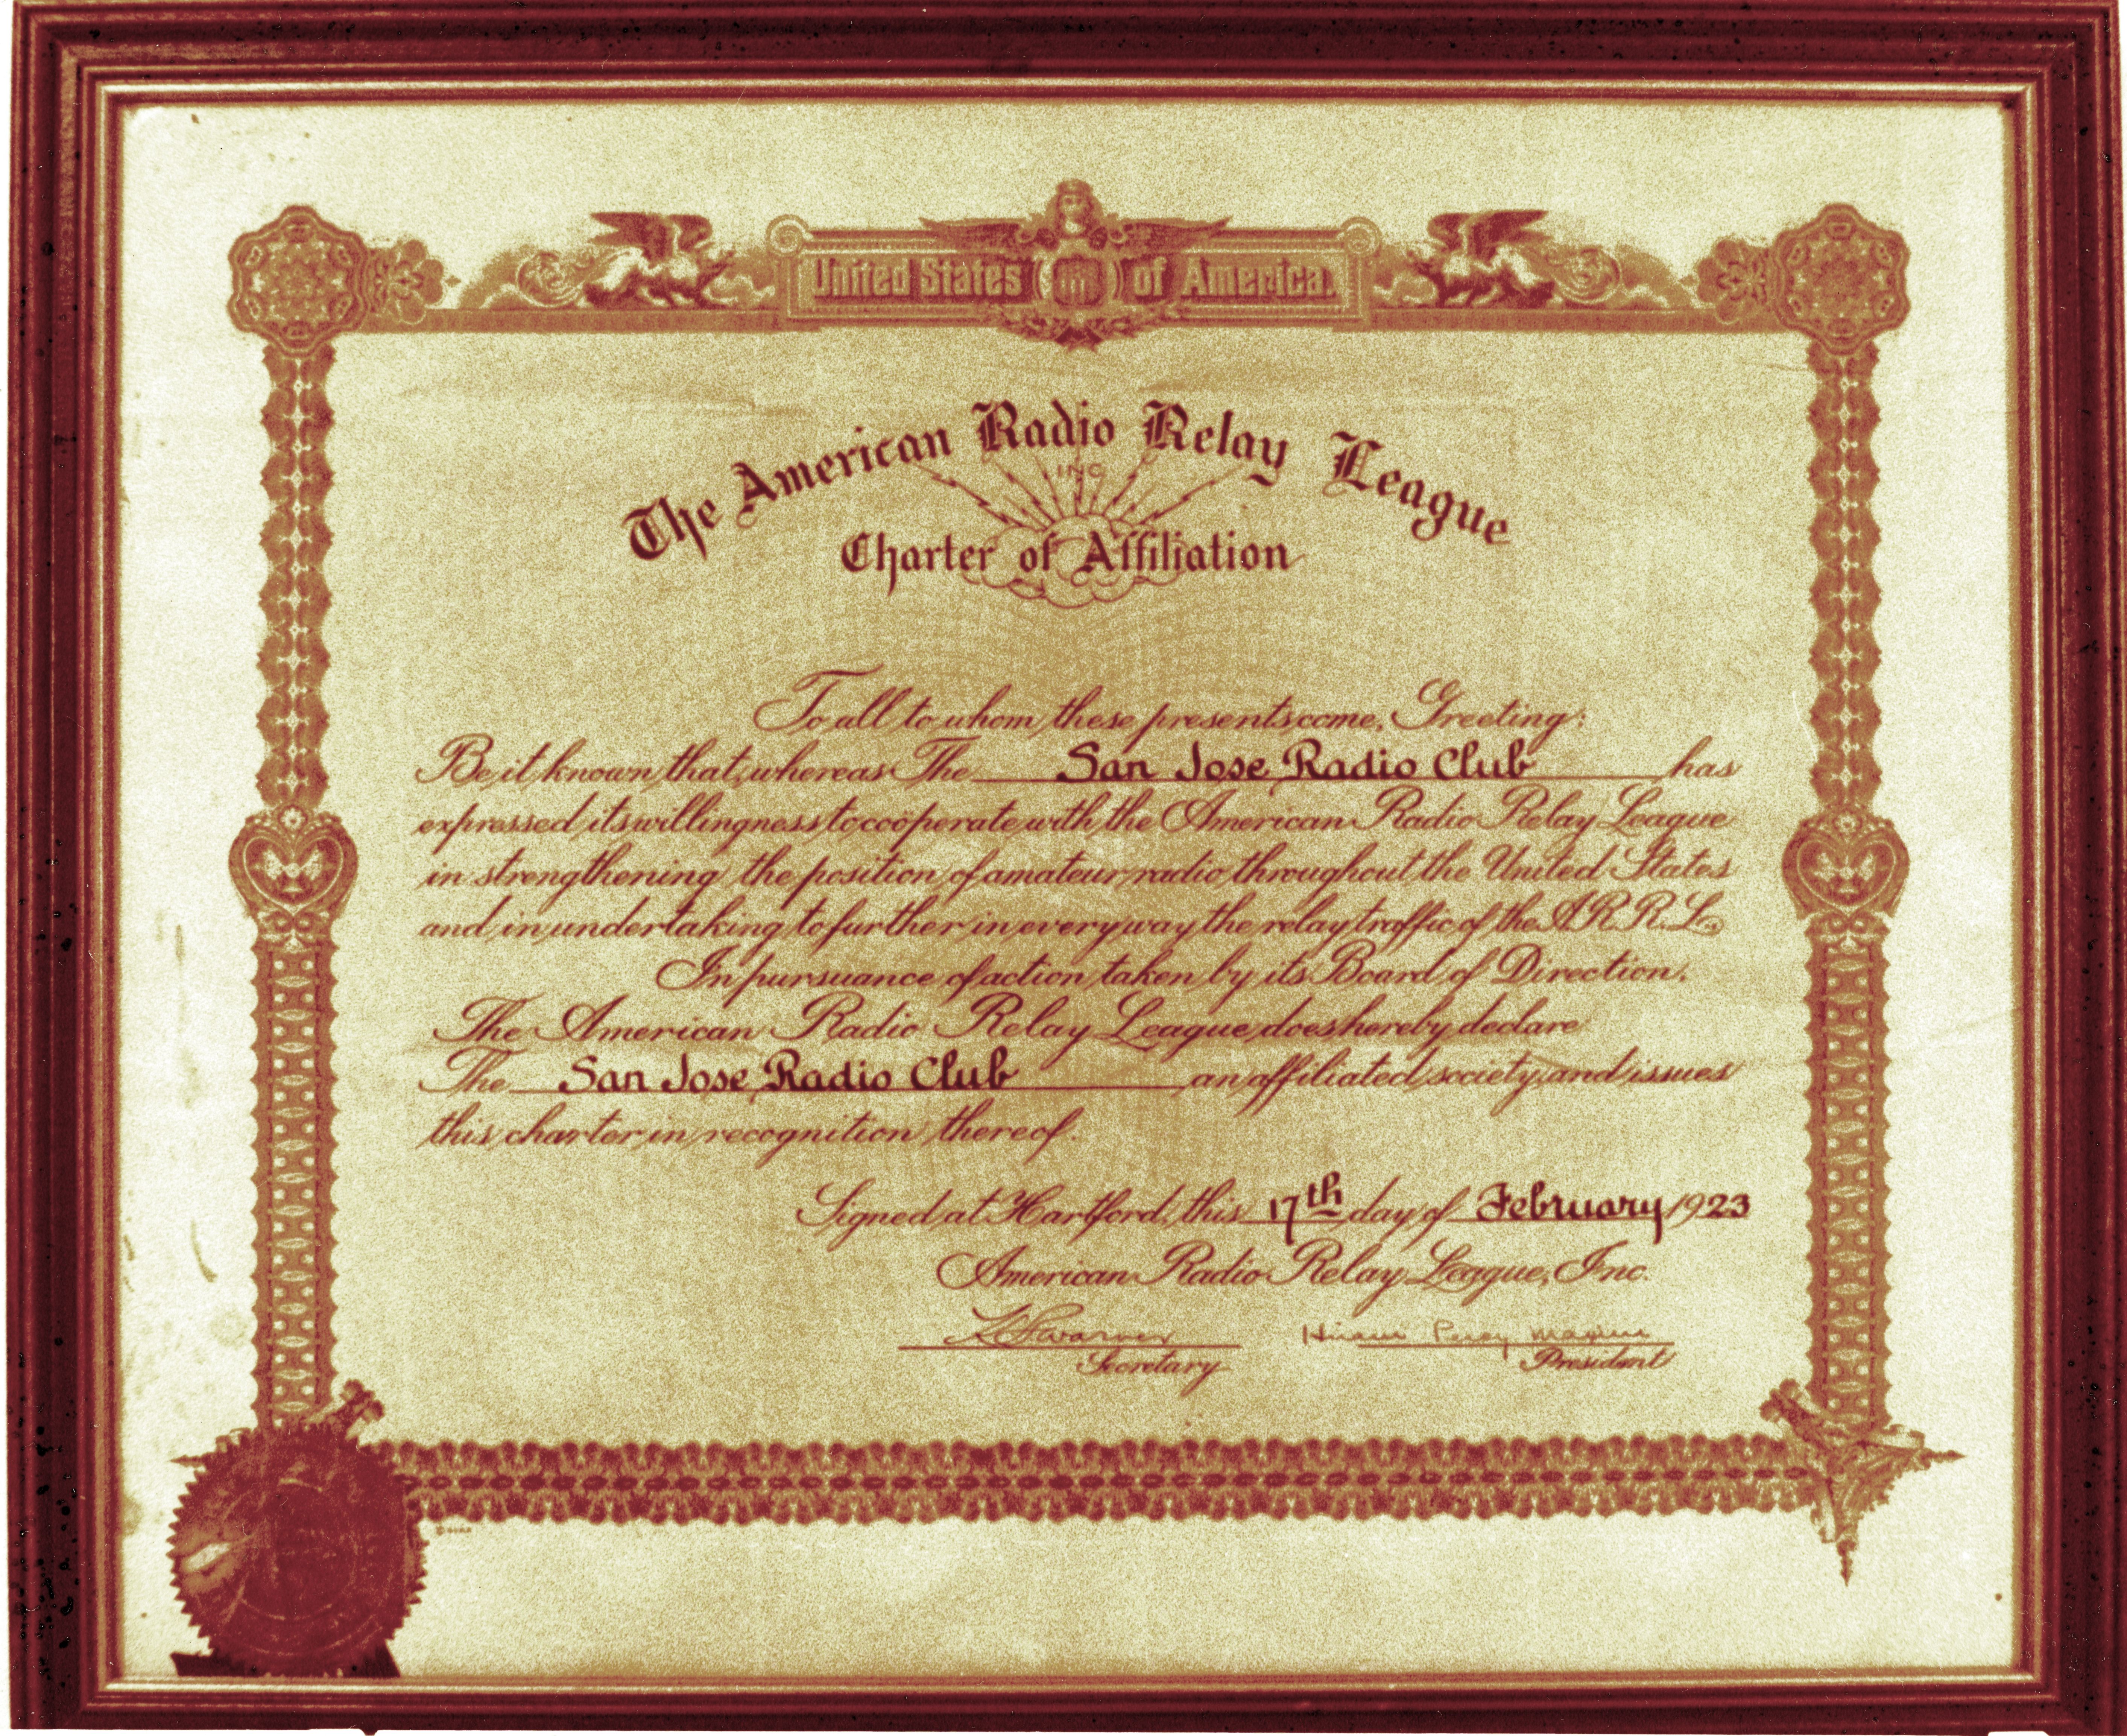 United States of America.
The American Radio Relay League
INC
Charter of Affiliation
To all to whom these presents come, Greeting:
Be it known that, whereas The San Jose Radio Club has
expressed its willingness to coöperate with the American Radio Relay League
in strengthening the position of amateur radio throughout the United States
and in undertaking to further in every way the relay traffic of the A.R.R.L.,
In pursuance of action taken by its Board of Direction,
The American Radio Relay League does hereby declare
The San Jose Radio Club an affiliated society and issues
this charter in recognition thereof.
Signed at Hartford, this 17th day of February 1923
American Radio Relay League, Inc.
K B Warner Hiram Percy Maxim
Secretary President